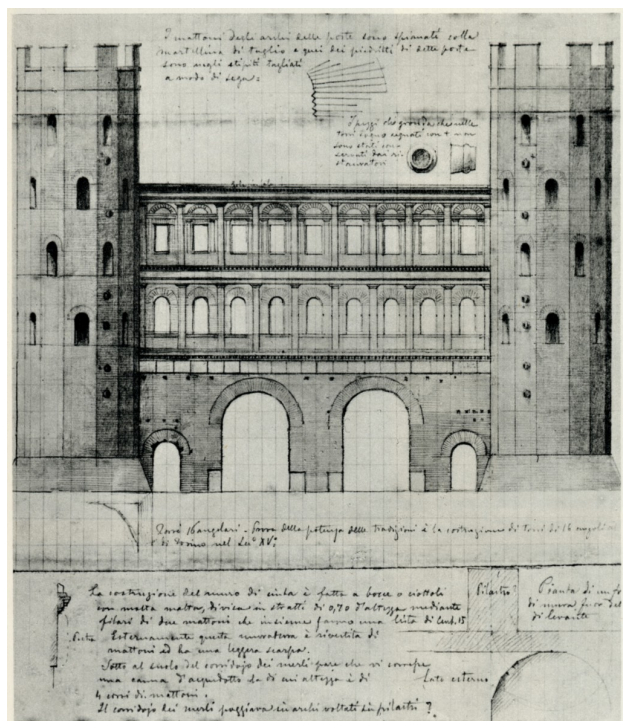 I mattoni degli archi delle porte sono spianati colla
martellina di taglio e quei dei piedritti di dette porte
sono negli stipiti tagliati
a modo di sega:
I pezzi che nelle
torri sono segnati con + non
sono stati
dai ri-
stauratori
Torri 16angolari. Prova della potenza delle tradizioni è la costruzione di torri di 16 angoli
Torino nel XV°
La costruzione del muro di cinta è fatta a bocce o ciottoli
con molta malta, divisa in stratti di 0,70 d'altezza mediante
filari di due mattoni che insieme fanno una lista di Cent. 15
Pietra Esternamente questa muratura è rivestita di
mattoni ed ha una leggera scarpa.
Sotto al suolo del corridojo dei merli pare che vi corresse
una canna d'aquedotto la di cui altezza è di
4 corsi di mattoni.
Il corridojo dei merli poggiava su archi voltati su pilastri?
Pilastro
Pianta di un
di mura
di levante
Lato esterno